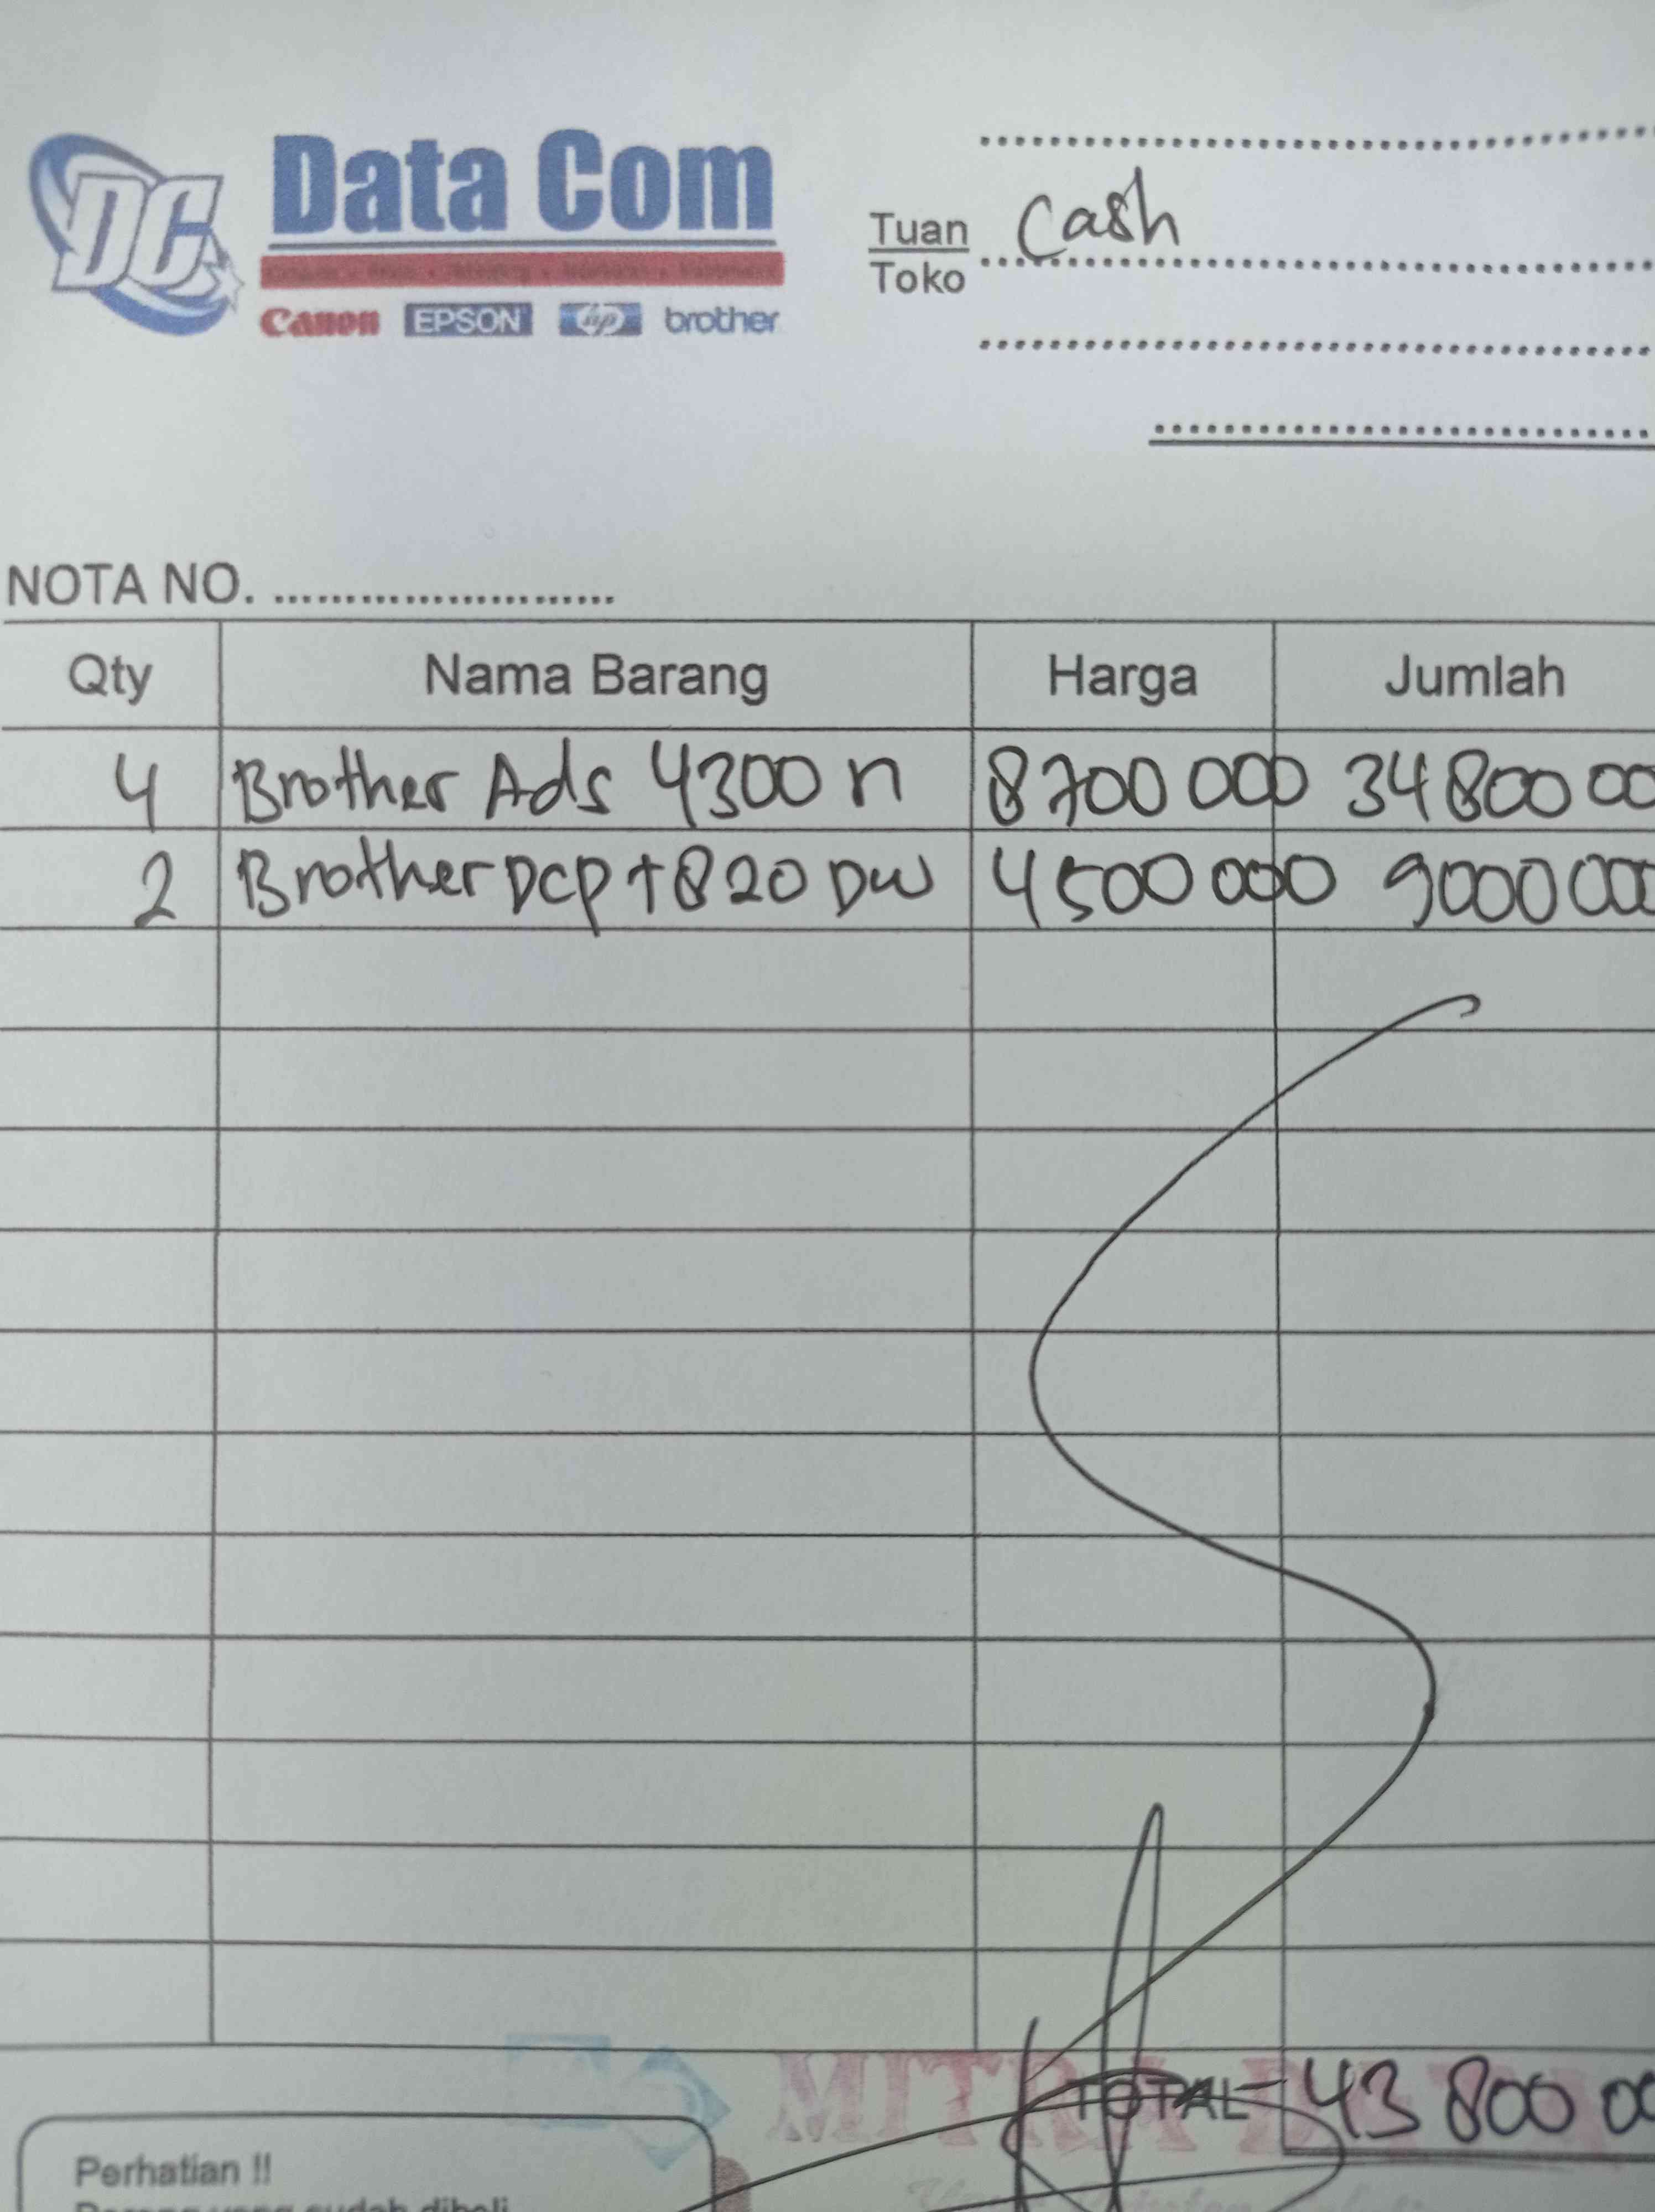 DC Data Com
Canon EPSON hp brother
Tuan Cash
Toko
NOTA NO.
Qty Nama Barang Harga Jumlah
4 Brother Ads 4300 n 8700 000 34 800 00
2 Brother DCP T820 DW 4500 000 9000 000
MITRA
TOTAL 43 800 00
Perhatian !!
Barang yang sudah dibeli